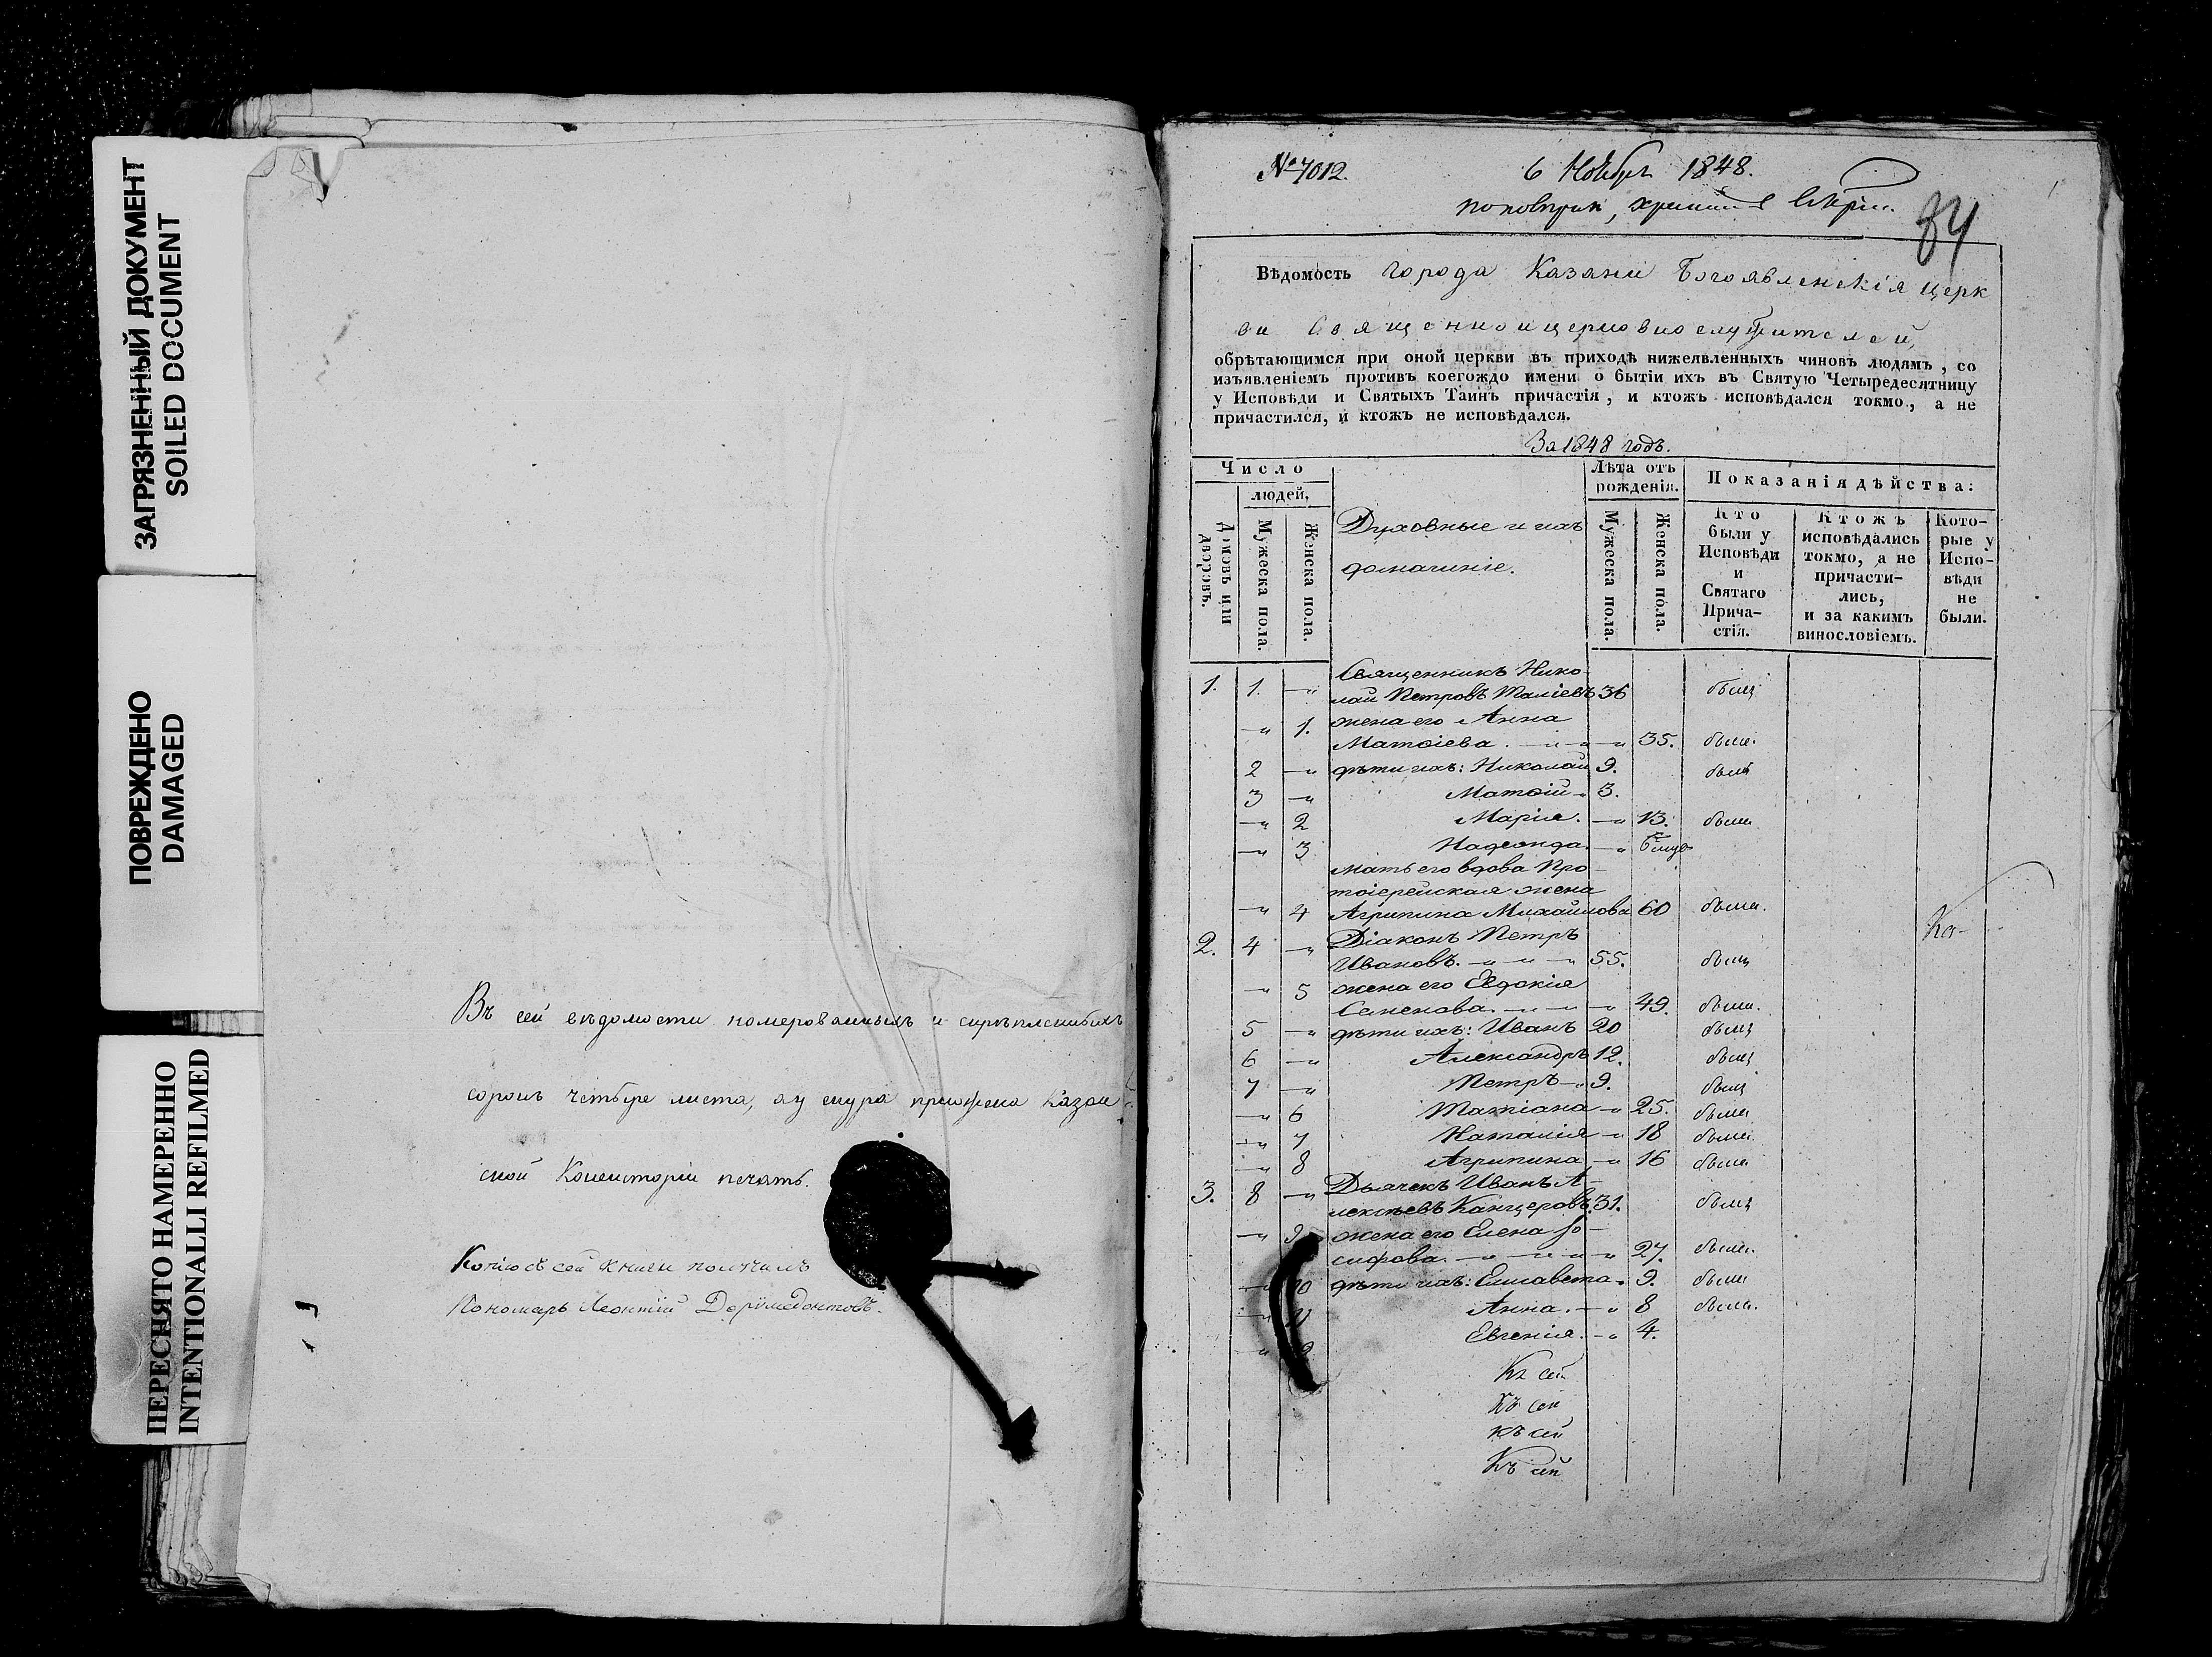 ЗАГРЯЗНЕННЫЙ ДОКУМЕНТ
SOILED DOCUMENT
ПОВРЕЖДЕНО
DAMAGED
ПЕРЕСНЯТО НАМЕРЕННО
INTENTIONALLI REFILMED
Въ сей вѣдомости номерованныхъ и скрѣпленныхъ
сорокъ четыре листа, а у шнура приложена Казан-
ской Консисторіи печать.
Копію съ сей книги получилъ
Пономарь Леонтій Доримедонтовъ.
№ 7012. 6 Ноября 1848.
84
Вѣдомость города Казани Богоявленскія церк
ви Священноицерковнослужителей,
обрѣтающимся при оной церкви въ приходѣ нижеявленныхъ чиновъ людямъ, со
изъявленіемъ противъ коегождо имени о бытіи ихъ въ Святую Четыредесятницу
у Исповѣди и Святыхъ Таинъ причастія, и ктожъ исповѣдался токмо, а не
причастился, и ктожъ не исповѣдался.
За 1848 годъ.
Число
людей,
Домовъ или дворовъ.
Мужеска пола.
Женска пола.
Духовные и ихъ
домашніе.
Лѣта отъ
рожденія.
Мужеска пола.
Женска пола.
Показанія дѣйства:
Кто
были у
Исповѣди
и
Святаго
Прича-
стія.
Ктожъ
исповѣдались
токмо, а не
причасти-
лись,
и за какимъ
винословіемъ.
Кото-
рые у
Испо-
вѣди
не
были.
Священникъ Нико-
1. 1. -„ лай Петровъ Таліевъ 36 былъ
-„ 1. жена его Анна
Матѳіева. -„-„-„ 35. была.
2 -„ дѣти ихъ: Николай 9. былъ
3 -„ Матѳій -„ 3.
-„ 2 Марія. -„ 13. была
-„ 3 Надежда. -„
мать его вдова Про-
тоіерейская жена
-„ 4 Агрипина Михайлова 60 была.
2. 4 -„ Діаконъ Петръ
Ивановъ. -„-„-„ 55. былъ
-„ 5 жена его Евдокія
Семенова. -„-„-„ 49. была.
5 -„ дѣти ихъ: Иванъ 20 былъ
6 -„ Александръ 12. былъ
7 -„ Петръ -„ 9. былъ
-„ 6 Татіана -„ 25. была
-„ 7 Наталія -„ 18 была.
-„ 8 Агрипина -„ 16 была
Ка-
3. 8 -„ Дьячекъ Иванъ А-
лексѣевъ Канцеровъ. 31. былъ
-„ 9 жена его Елена Іо-
сифова. -„-„-„ 27. была.
-„ 10 дѣти ихъ: Елисавета -„ 9. была
-„ 11 Анна. -„ 8 была.
-„ Евгенія. -„ 4.
Къ сей
Къ сей
къ сей
Къ сей